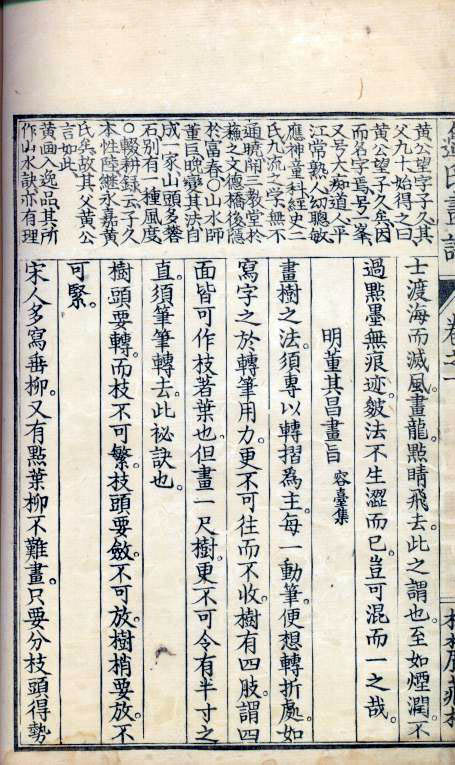 黃公望字子久其
父九十始得之曰
黃公望子久矣因
而名字焉号一峯
又号大痴道人平
江常熟人幼聰敏
應神童科經史二
氏九流之學無不
通曉開三教堂於
蘓之文德橋後隱
於富春○山水師
董巨晚變其法自
成一家山頭多礬
石別有一種風度
○輟耕録云子久
本性陸継永嘉黃
氏矣故其父黃公
言如此
黃画入逸品其所
作山水訣亦有理
卷之一
士渡海而滅風畫龍點睛飛去此之謂也。至如煙潤不
過點墨無痕迹。皴法不生澀而已。豈可混而一之哉。
明董其昌畫旨 容臺集
畫樹之法。須專以轉摺爲主。每一動筆便想轉折處。如
寫字之於轉筆用力。更不可往而不收。樹有四肢。謂四
面皆可作枝著葉也。但畫一尺樹。更不可令有半寸之
直。須筆筆轉去。此祕訣也
樹頭要轉。而枝不可繁。枝頭要斂。不可放。樹梢要放。不
可緊。
宋人多寫垂柳。又有點葉柳不難畫。只要分枝頭得勢